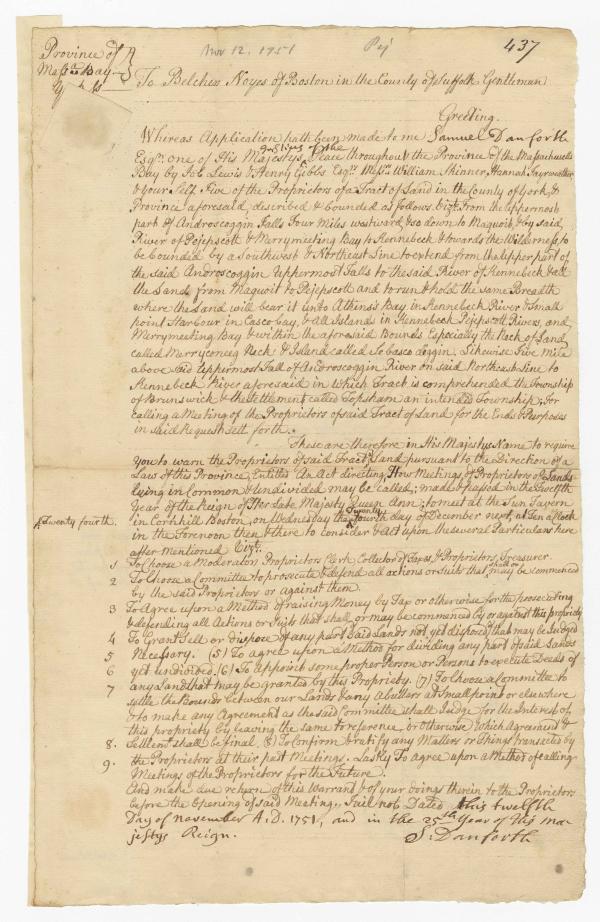 Nov 12. 1751
Pej
437
Province of
Massts Bay
To Belcher Noyes of Boston in the County of Suffolk Gentleman
Greeting.
Whereas Application hath been made to me Samuel Danforth
Esqr. one of His Majestys Justices of the Peace throughout the Province of the Massachusetts
Bay by Job Lewis & Henry Gibbs Esqrs. Messrs. William Skinner, Hannah Fayrweather
& your Self Five of the Proprietors of a Tract of Land in the County of York, &
Province aforesaid, described & bounded as follows. Vizt. From the Uppermost
part of Androscoggin Falls Four Miles westward, & so down to Maquoit, & by said
River of Pejepscott & Merrymeeting Bay to Kennebeck & towards the Wilderness, to
be bounded by a Southwest & Northeast Line to extend from the Upper part of
the said Androscoggin Uppermost Falls to the said River of Kennebeck & all
the Lands from Maquoit to Pejepscott and to run & hold the same Breadth
where the Land will bear it unto Atkins's Bay, in Kennebeck River & Small
point Harbour in Casco bay, & all Islands in Kennebeck & Pejepscott Rivers, and
Merrymeeting Bay & within the aforesaid Bounds Especially the Neck of Land
called Merryconeeg Neck & Island called Sobascodeggin. Likewise Five Mile
above said Uppermost Fall of Androscoggin River on said Northeast Line to
Kennebeck River aforesaid in which Tract is comprehended the Township
of Brunswick & the Settlement called Topsham an intended Township; for
calling a Meeting of the Proprietors of said Tract of Land for the Ends & Purposes
in said Request sett forth.
These are therefore in His Majestys Name to require
You to warn the Proprietors of said Tract of Land pursuant to the Direction of a
Law of this Province, Entitled An Act directing How Meetings of Proprietors of Lands
lying in Common & undivided may be called; made & passed in the Twelfth
Year of the Reign of Her Late Majesty Queen Ann; to meet at the Sun Tavern
in Cornhill Boston, on Wednesday the Twenty fourth day of December next, at Ten a Clock
Twenty fourth.
in the Forenoon then & there to consider & act upon the several Particulars here
after Mentioned Vizt.
1 To Choose a Moderator Proprietors Clerk Collector of Taxes & Proprietors Treasurer.
2 To Choose a Committee to prosecute & defend all actions or Suits that shall or may be commenced
by the said Proprietors or against them.
3 To Agree upon a Method of raising Money by Tax or otherwise for the prosecuting
& defending all Actions or Suits that shall or may be commenced by or against this propriety
4 To Grant Sell or dispose of any part said Lands not yet disposed that may be Judged
5 Necessary. (5) To agree upon a Method for dividing any part of said Lands
6 yet undivided. (6) To appoint some proper Person or Persons to execute Deeds of
7 any Land that may be granted by this Propriety. (7) To Choose a Committee to
settle the Bounds between our Lands & any Abutters at Small point or elsewhere
& to make any Agreement as the said Committee shall Judge for the Interest of
this propriety by leaving the same to reference, or otherwise, which Agreement &
8. Settlemt shall be final. (8) To Confirm & ratify any Matters or Things transacted by
9. the Proprietors at their past Meetings. Lastly To agree upon a Method of calling
Meetings of the Proprietors for the Future.
And make due return of this Warrant & of your doings therein to the Proprietors
before the Opening of said Meeting. Fail not. Dated this twelfth
Day of November A.D. 1751, and in the 25th Year of His Ma-
jestys Reign.
S. Danforth